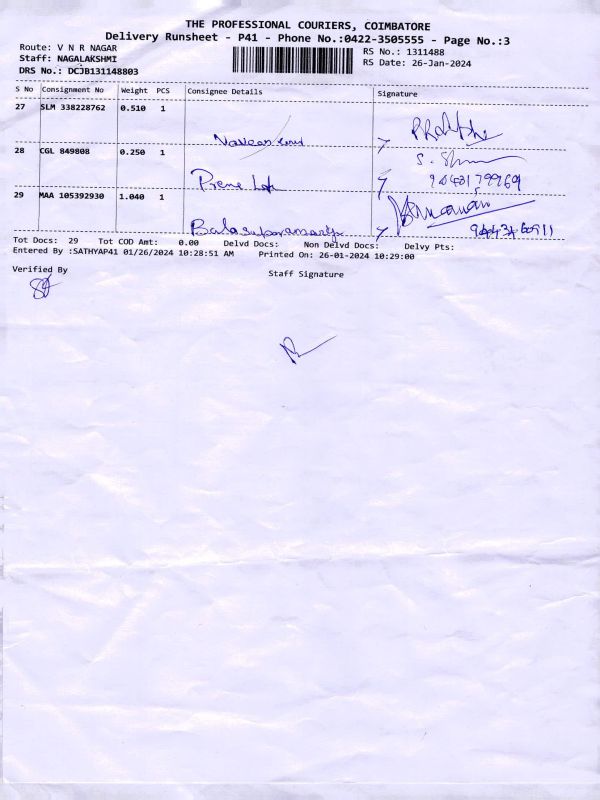 THE PROFESSIONAL COURIERS, COIMBATORE
Delivery Runsheet - P41 - Phone No.:0422-3505555 - Page No.:3
Route: V N R NAGAR
RS No.: 1311488
Staff: NAGALAKSHMI
RS Date: 26-Jan-2024
DRS No.: DCJB131148803
S No Consignment No Weight PCS Consignee Details Signature
27 SLM 338228762 0.510 1
28 CGL 849808 0.250 1
29 MAA 105392930 1.040 1
Tot Docs: 29 Tot COD Amt: 0.00 Delvd Docs: Non Delvd Docs: Delvy Pts:
Entered By :SATHYAP41 01/26/2024 10:28:51 AM Printed On: 26-01-2024 10:29:00
Verified By
Staff Signature